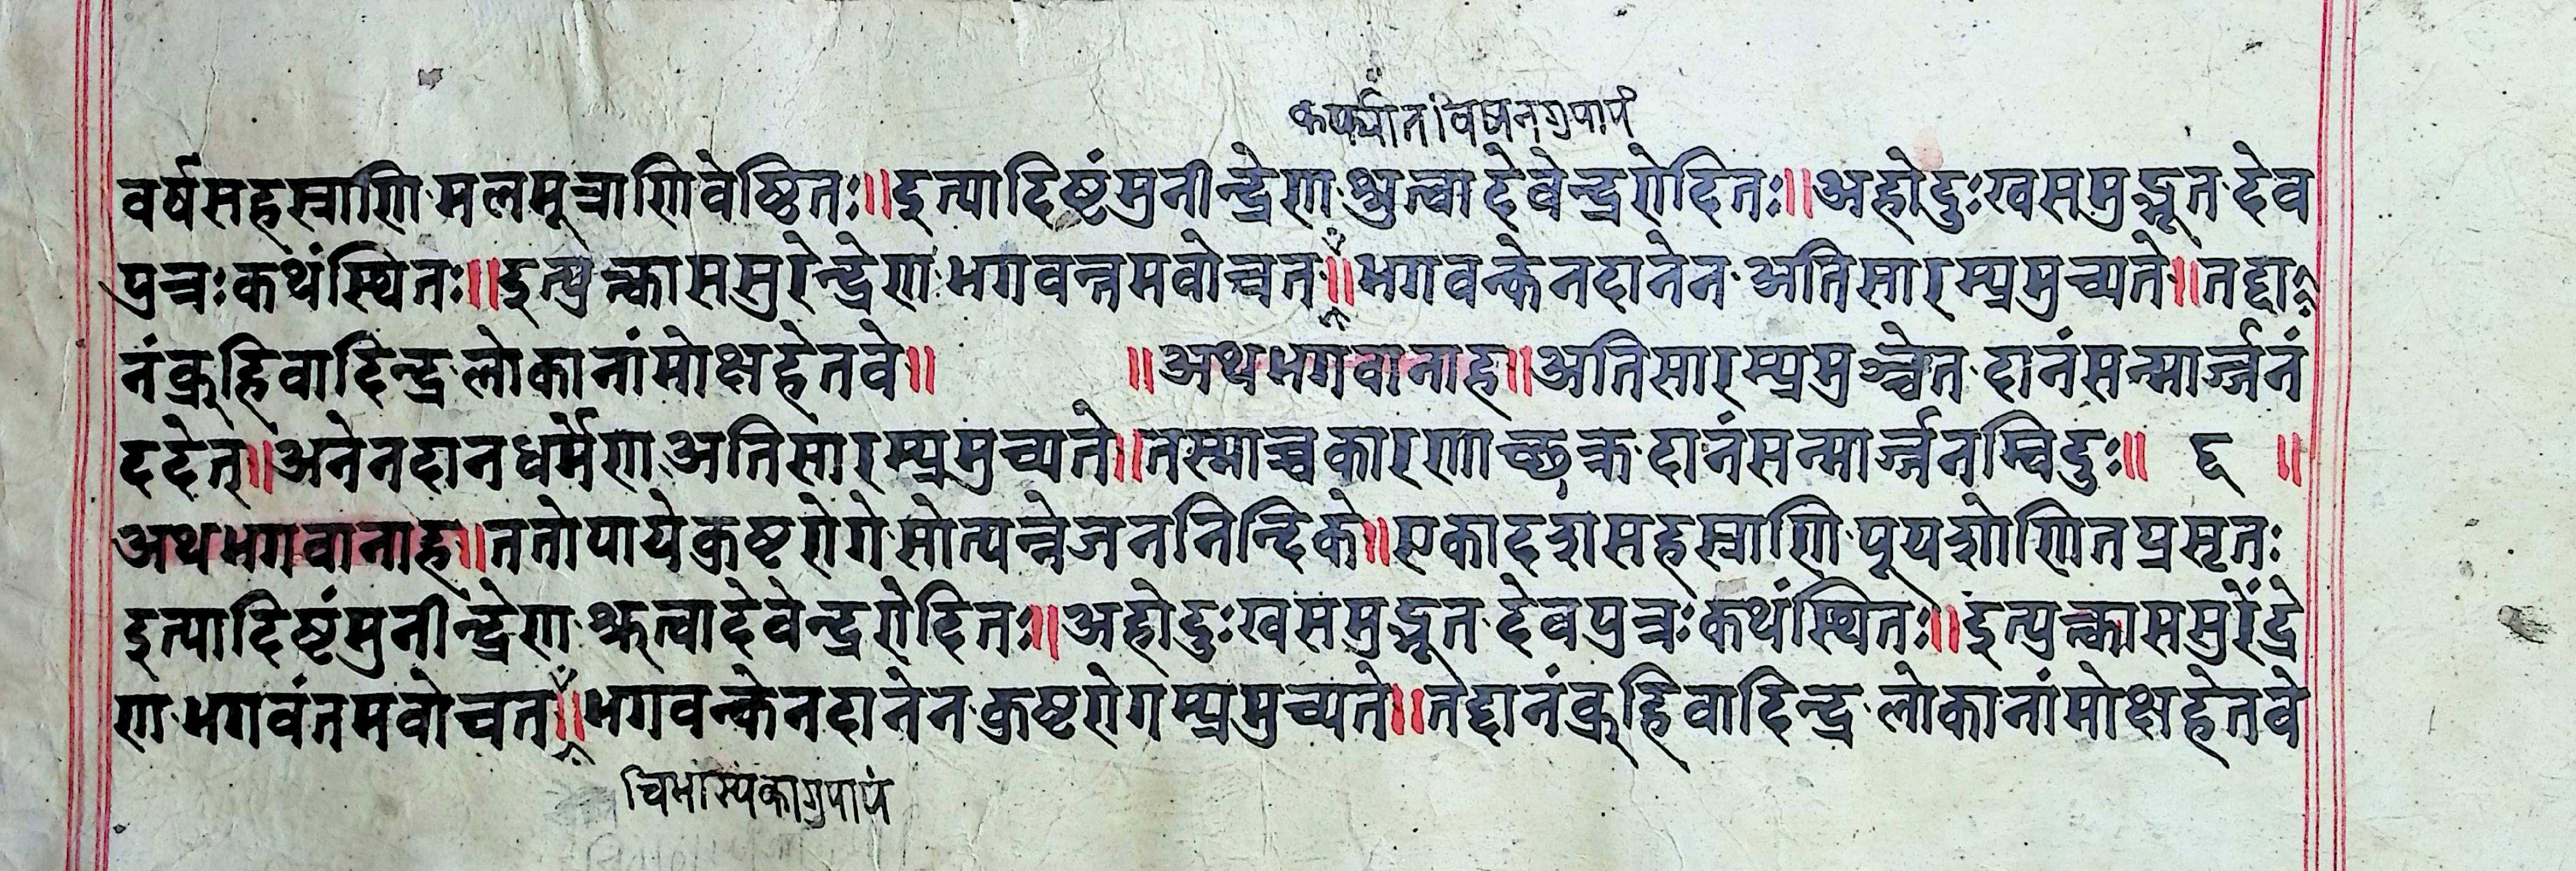 वर्षसहस्त्राणि मलमूत्राणि वेष्टितः॥ इत्यादिष्टं मुनीन्द्रेण श्रुत्वा देवेन्द्र रोदितः॥ अहो दुःख समुद्भूत देव
पुत्रः कथं स्थितः॥ इत्युत्क्वा स सुरेन्द्रेण भगवन्तमवोचत्॥ भगवन्केन दानेन अतिसारम्प्रमुच्यते॥ तद्दा
नं ब्रुहि वादिन्द्र लोकानां मोक्षहेतवे॥ ॥ अथ भगवानाह॥ अतिसारम्प्रमुञ्चेत दानं सन्मार्ज्जनं
ददेत्॥ अनेन दानधर्मेण अतिसारम्प्रमुच्यते॥ तस्माच्च कारणाच्छक्र दानं सन्मार्ज्जनम्विदुः॥ ६ ॥
अथ भगवानाह॥ ततोपाये कुष्टरोगे सोत्पन्ने जननिन्दिके॥ एकादशसहस्त्राणि पूयशोणित प्रसृतः
इत्यादिष्टं मुनीन्द्रेण श्रुत्वा देवेन्द्र रोदितः॥ अहो दुःख समुद्भूत देवपुत्रः कथं स्थितः॥ इत्युत्क्वा स सुरेंद्रे
ण भगवंतमवोचत॥ भगवन्केन दानेन कुष्टरोगम्प्रमुच्यते॥ तद्दानं ब्रुहि वादिन्द्र लोकानां मोक्षहेतवे